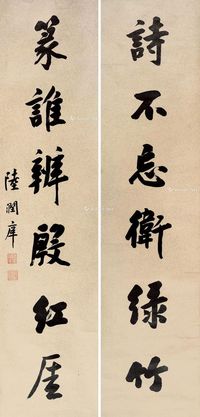 詩不忘衛绿竹
篆誰辨殷红厓
陸潤庠